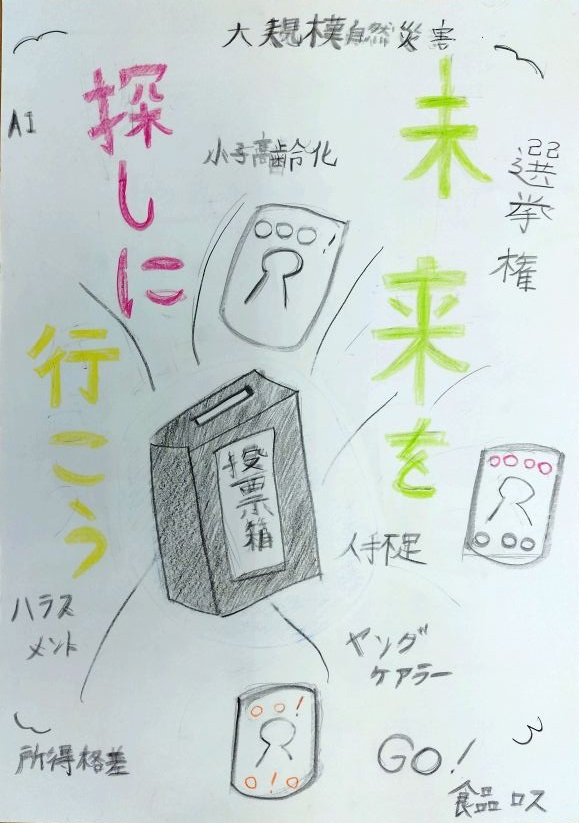 大規模自然災害
未来を
探しに
行こう
AI
少子高齢化
選挙権
投票箱
人手不足
ハラス
メント
ヤング
ケアラー
所得格差
GO!
食品ロス